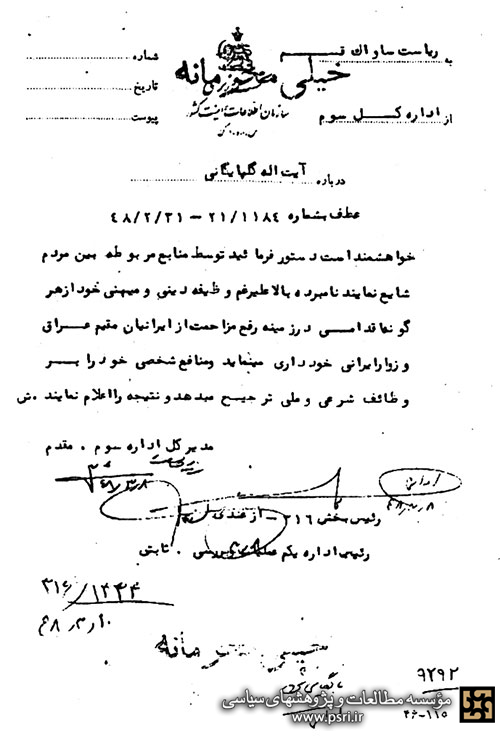 به ریاست ساواک قم
شماره
خیلی محرمانه
تاریخ
سازمان اطلاعات و امنیت کشور
از اداره کل سوم
پیوست
درباره آیت اله گلپایگانی
عطف بشماره ۲۱/۱۱۸۴ - ۴۸/۲/۳۱
خواهشمند است دستور فرمائید توسط منابع مربوطه بین مردم
شایع نمایند نامبرده بالا علیرغم وظیفه دینی و میهنی خود از هر
گونه اقدامی در زمینه رفع مزاحمت از ایرانیان مقیم عراق
و زوار ایرانی خودداری مینماید ومنافع شخصی خود را بـر
وظائف شرعی و ملی ترجیح میدهد و نتیجه را اعلام نمایند . ش
مدیر کل اداره سوم . مقدم
۴۸/۳/۸
رئیس بخش ۳۱۶ - ازغندی
رئیس اداره یکم عملیات و بررسی . ثابتی
۳۱۶/۱۲۴۴
۴۸/۳/۱۰
خیلی محرمانه
بایگانی شود
۹۲۹۲
موسسه مطالعات و پژوهشهای سیاسی
www.psri.ir